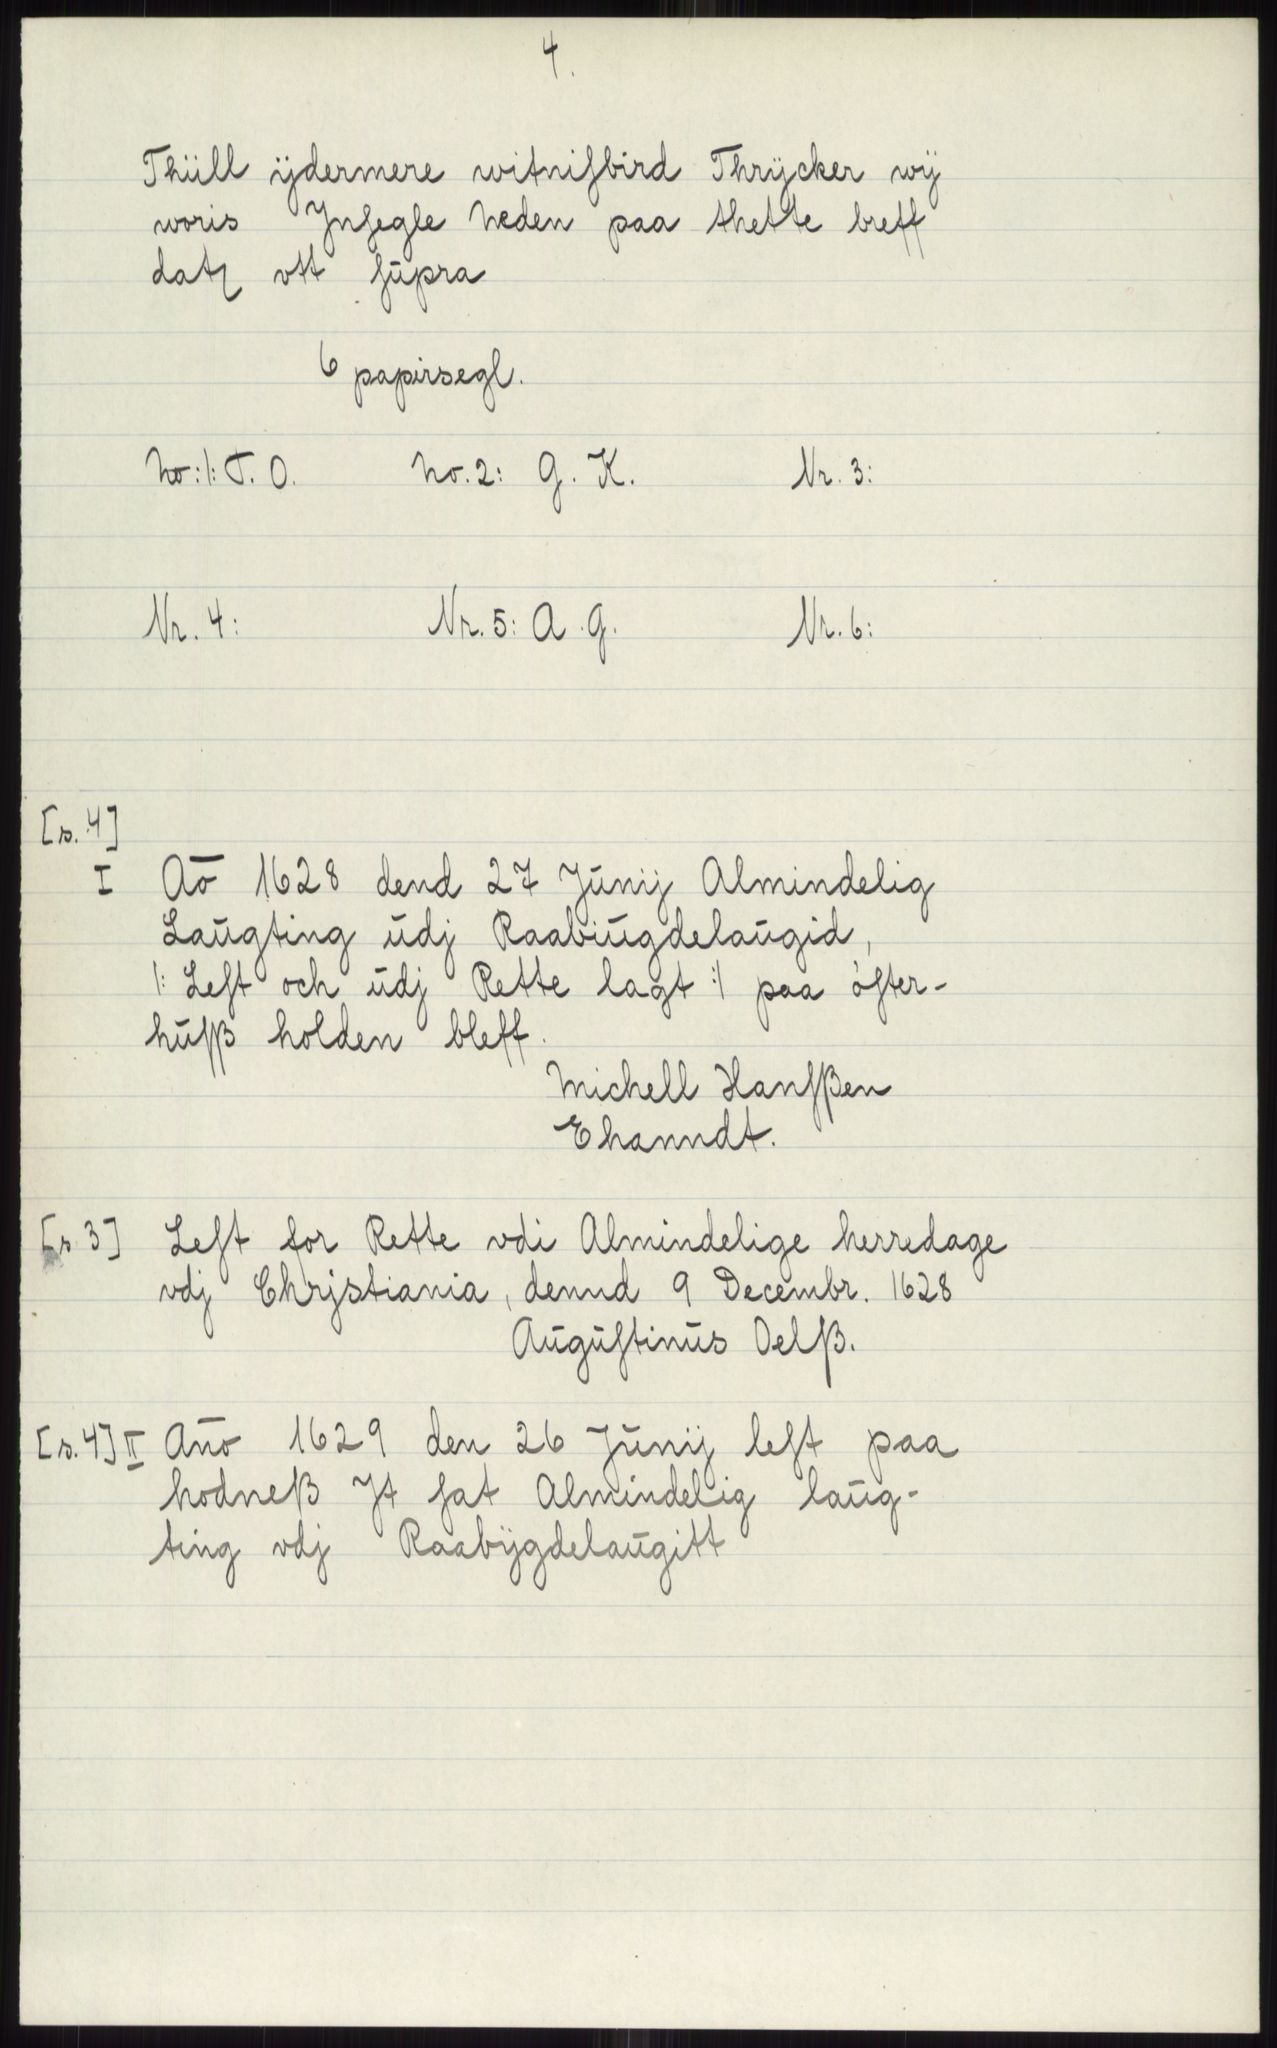 4.
Thüll ÿdermere witnisbird Thrÿcker wÿ
woris Jnsegle Neden paa thette breff
datz vtt sŭpra
6 papirsegl.
No: 1: T. O. No. 2: G. K. Nr. 3:
Nr. 4: Nr. 5: A. G. Nr. 6:
[s. 4]
I Aō 1628 dend 27 Jŭnij Almindelig
Laŭgting ŭdj Raabiŭgdelaŭgid,
/: Lest och ŭdj Rette lagt :/ paa òster-
hŭsß holden bleff.
Michell Hansßen
Ehanndt.
[s 3] Lest for Rette vdi Almindelige herredage
vdj Chrjstiania, dennd 9 Decembr. 1628
Aŭgŭstinŭs Oelß.
[s. 4] II An̄o 1629 den 26 Jŭnij lest paa
hodneß Jt sat Almindelig laŭg-
ting vdj Raabÿgdelaŭgitt